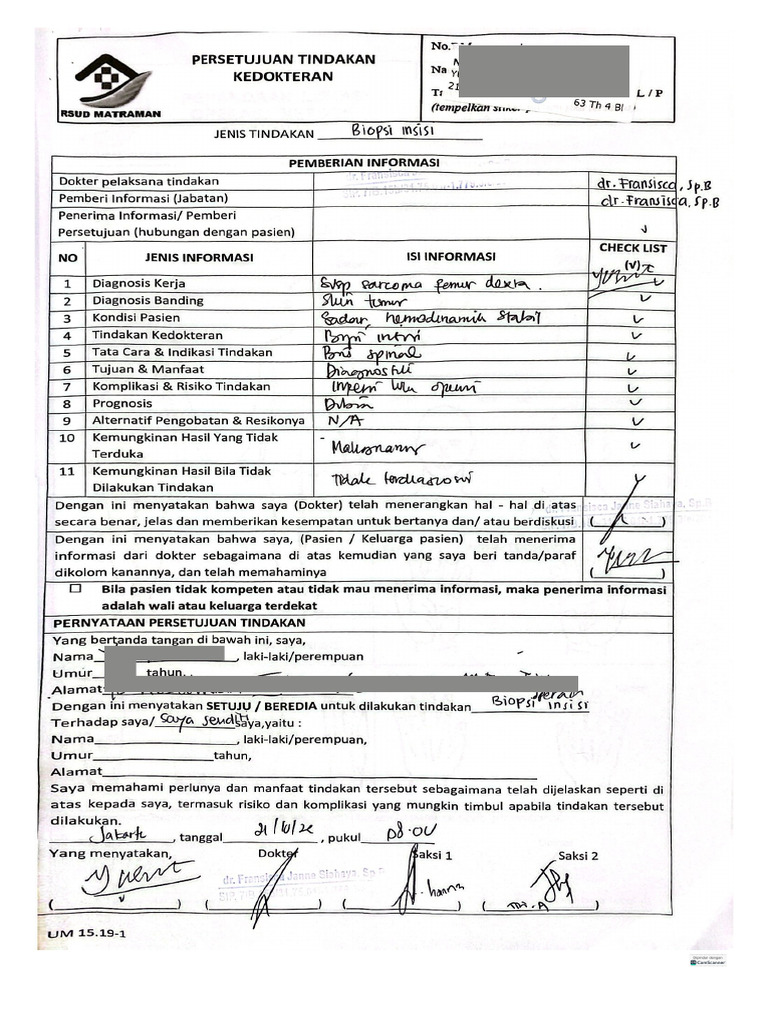 PERSETUJUAN TINDAKAN
KEDOKTERAN
RSUD MATRAMAN
No.
Na
T: L / P
63 Th 4 Bl
(tempelkan
JENIS TINDAKAN Biopsi insisi
PEMBERIAN INFORMASI
Dokter pelaksana tindakan dr. Fransisca, Sp.B
Pemberi Informasi (Jabatan) dr. Fransisca, Sp.B
Penerima Informasi/ Pemberi
Persetujuan (hubungan dengan pasien) v
NO JENIS INFORMASI ISI INFORMASI CHECK LIST
(v)
1 Diagnosis Kerja Susp sarcoma femur dextra. v
2 Diagnosis Banding Skin tumor v
3 Kondisi Pasien Sadar, hemodinamik stabil v
4 Tindakan Kedokteran v
5 Tata Cara & Indikasi Tindakan spinal v
6 Tujuan & Manfaat Diagnostik v
7 Komplikasi & Risiko Tindakan v
8 Prognosis Dubia v
9 Alternatif Pengobatan & Resikonya N/A v
10 Kemungkinan Hasil Yang Tidak
Terduka v
11 Kemungkinan Hasil Bila Tidak
Dilakukan Tindakan Tidak
Dengan ini menyatakan bahwa saya (Dokter) telah menerangkan hal - hal di atas
secara benar, jelas dan memberikan kesempatan untuk bertanya dan/ atau berdiskusi
Dengan ini menyatakan bahwa saya, (Pasien / Keluarga pasien) telah menerima
informasi dari dokter sebagaimana di atas kemudian yang saya beri tanda/paraf
dikolom kanannya, dan telah memahaminya
Bila pasien tidak kompeten atau tidak mau menerima informasi, maka penerima informasi
adalah wali atau keluarga terdekat
PERNYATAAN PERSETUJUAN TINDAKAN
Yang bertanda tangan di bawah ini, saya,
Nama , laki-laki/perempuan
Umur tahun.
Alamat
Dengan ini menyatakan SETUJU / BEREDIA untuk dilakukan tindakan Biopsi insisi
Terhadap saya/ saya sendiri saya,yaitu :
Nama , laki-laki/perempuan,
Umur tahun,
Alamat
Saya memahami perlunya dan manfaat tindakan tersebut sebagaimana telah dijelaskan seperti di
atas kepada saya, termasuk risiko dan komplikasi yang mungkin timbul apabila tindakan tersebut
dilakukan.
Jakarta , tanggal , pukul
Yang menyatakan, Dokter Saksi 1 Saksi 2
dr. Fransisca Janne Siahaya, Sp.B
UM 15.19-1
CamScanner